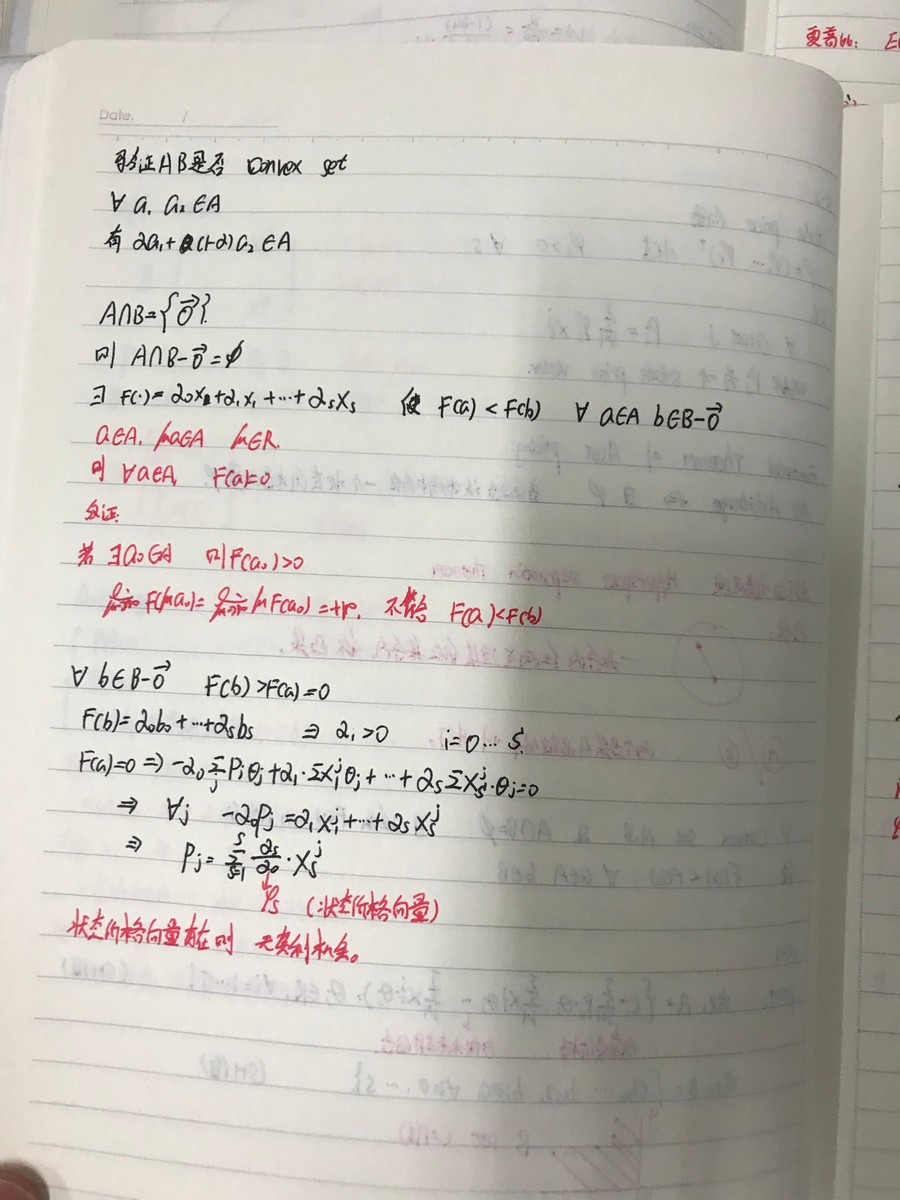 更高的:
Date. /
验证AB是否 convex set
∀ a₁ a₂ ∈A
有 αa₁+(1-α)a₂ ∈A
A∩B={0⃗}
则 A∩B-0⃗=∅
∃ F(·)=α₀x₀+α₁x₁+…+αₛxₛ 使 F(a)<F(b) ∀ a∈A b∈B-0⃗
a∈A, μa∈A μ∈R.
则 ∀a∈A, F(a)=0.
反证:
若 ∃a₀∈A 则F(a₀)>0
F(μa₀)= μF(a₀)=+∞, 不符合 F(a)<F(b)
∀ b∈B-0⃗ F(b)>F(a)=0
F(b)=α₀b₀+…+αₛbₛ ⇒ αᵢ>0 i=0…S.
F(a)=0 ⇒ -α₀ΣPⱼθⱼ+α₁·Σx₁ʲθⱼ+…+αₛΣxₛʲ·θⱼ=0
⇒ ∀j -α₀Pⱼ=α₁x₁ʲ+…+αₛxₛʲ
⇒ Pⱼ=Σₛ₌₁ˢ αₛ/α₀·xₛʲ
φₛ (状态价格向量)
状态价格向量存在则 无套利机会。